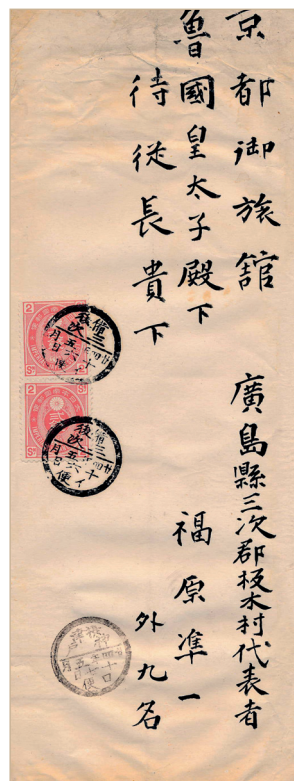 京都御旅舘
魯國皇太子殿下
侍従長貴下
廣島縣三次郡板木村代表者
福原準一
外九名
2
Sn
備後
三次
廿四
五月十六日
イ便
2
Sn
備後
三次
廿四
五月十六日
イ便